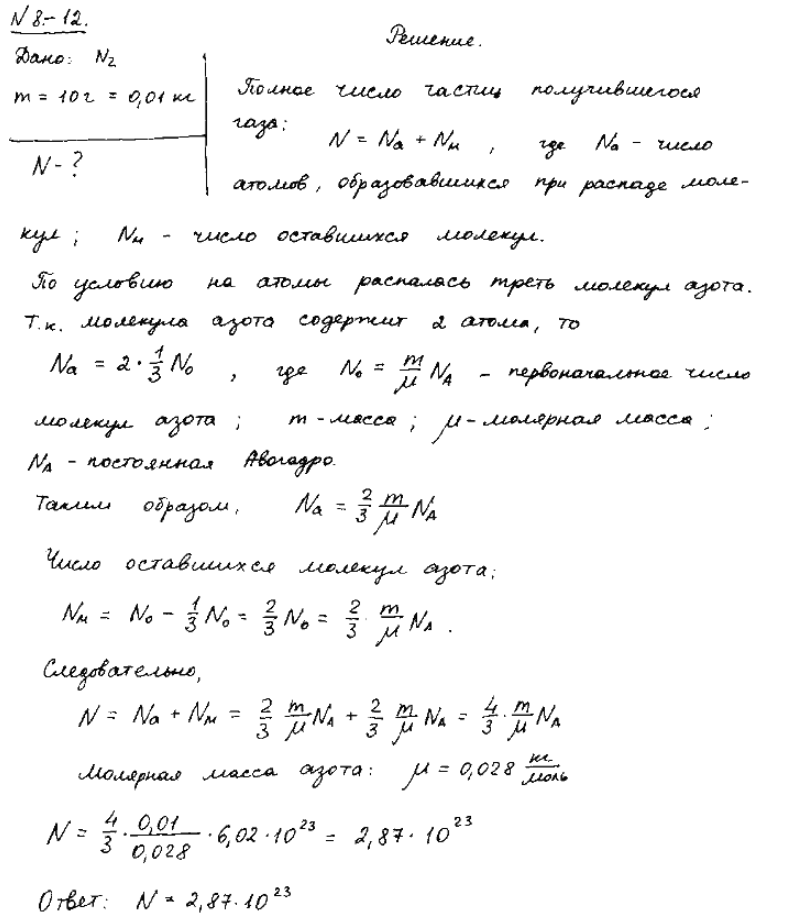 N 8.-12.
Решение.
Дано: N₂
m = 10 г = 0,01 кг
N - ?
Полное число частиц получившегося
газа:
N = Nа + Nм , где Nа - число
атомов, образовавшихся при распаде моле-
кул ; Nм - число оставшихся молекул.
По условию на атомы распалась треть молекул азота.
Т.к. молекула азота содержит 2 атома, то
Nа = 2 · 1/3 N₀ , где N₀ = m/μ N_A - первоначальное число
молекул азота ; m - масса ; μ - молярная масса ;
N_A - постоянная Авогадро.
Таким образом, Nа = 2/3 m/μ N_A
Число оставшихся молекул азота:
Nм = N₀ - 1/3 N₀ = 2/3 N₀ = 2/3 · m/μ N_A .
Следовательно,
N = Nа + Nм = 2/3 m/μ N_A + 2/3 m/μ N_A = 4/3 · m/μ N_A
Молярная масса азота: μ = 0,028 кг/моль
N = 4/3 · 0,01/0,028 · 6,02 · 10²³ = 2,87 · 10²³
Ответ: N = 2,87 · 10²³